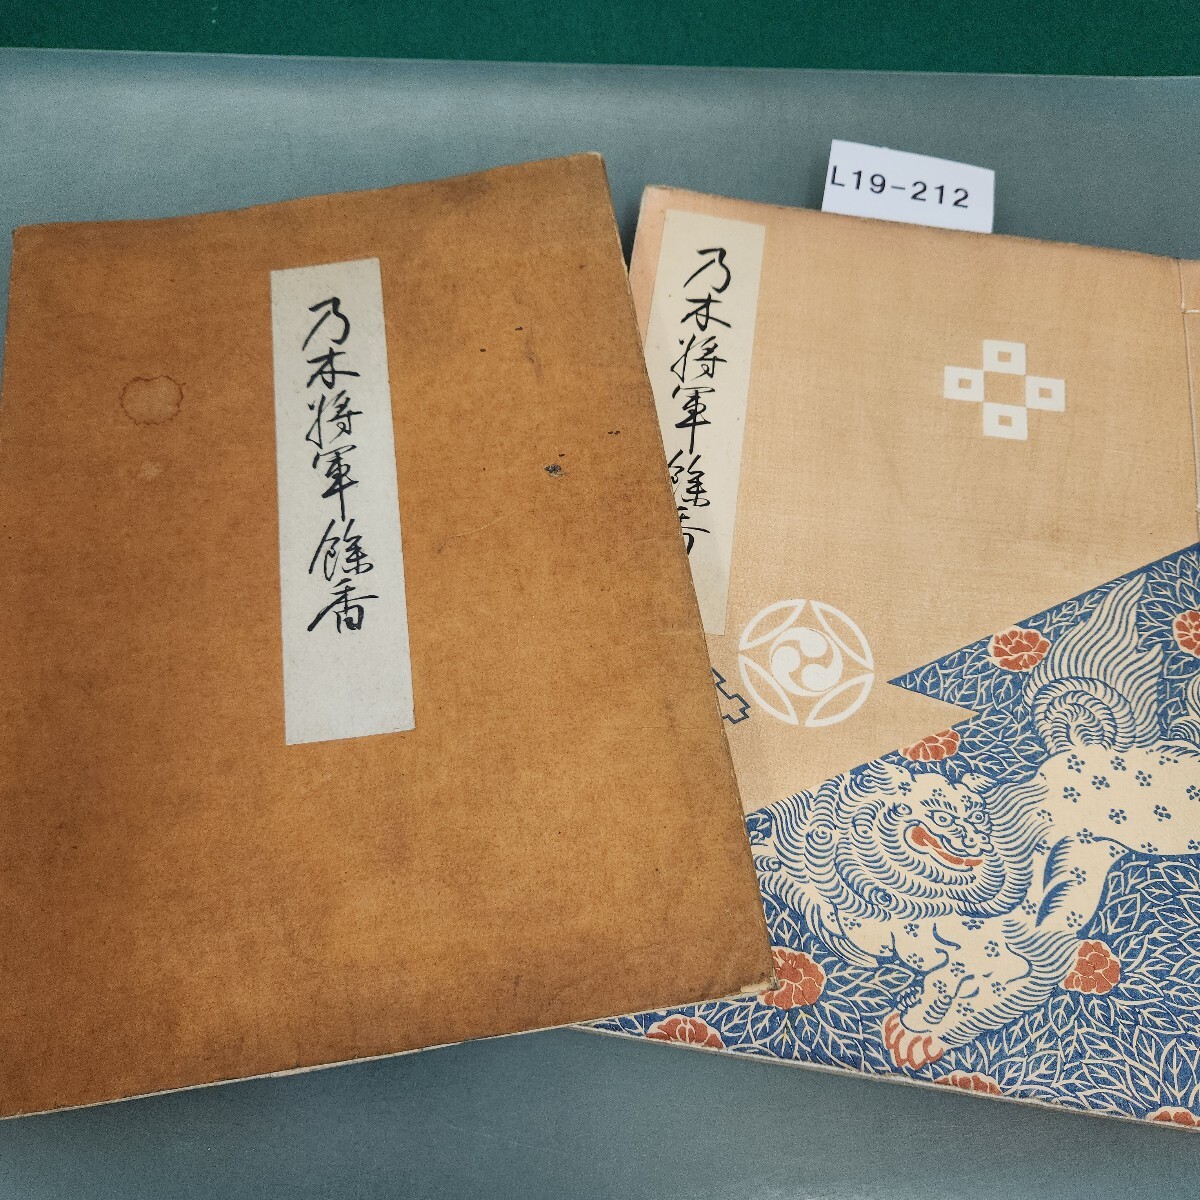 乃木将軍餘香
乃木将軍餘香
L19-212